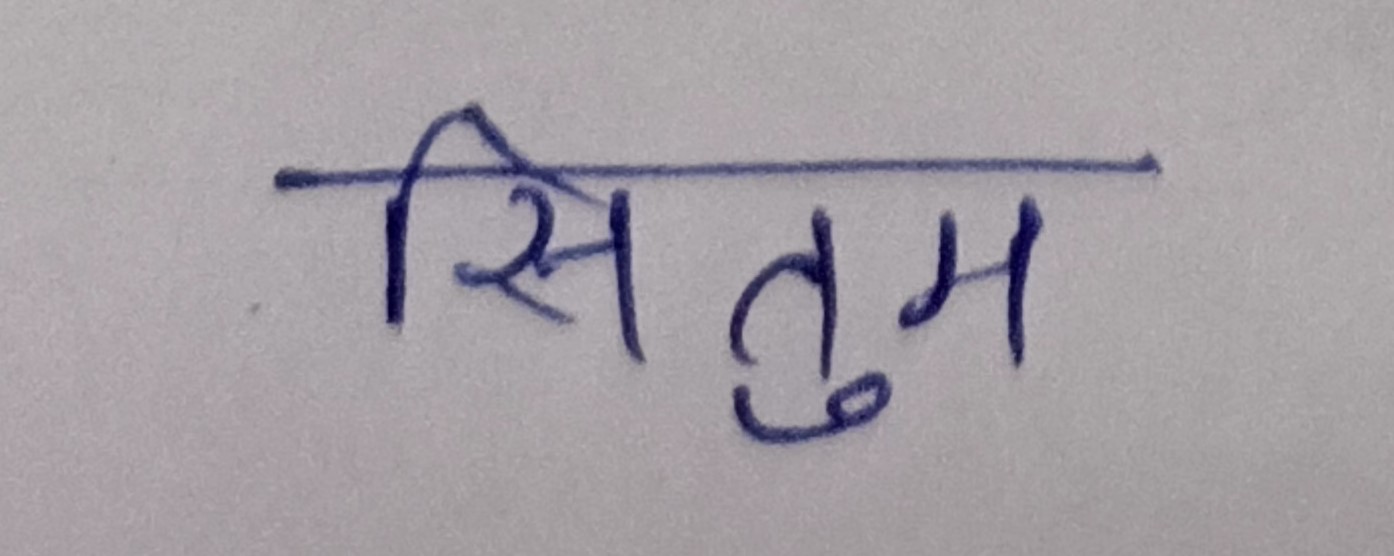 सितुम